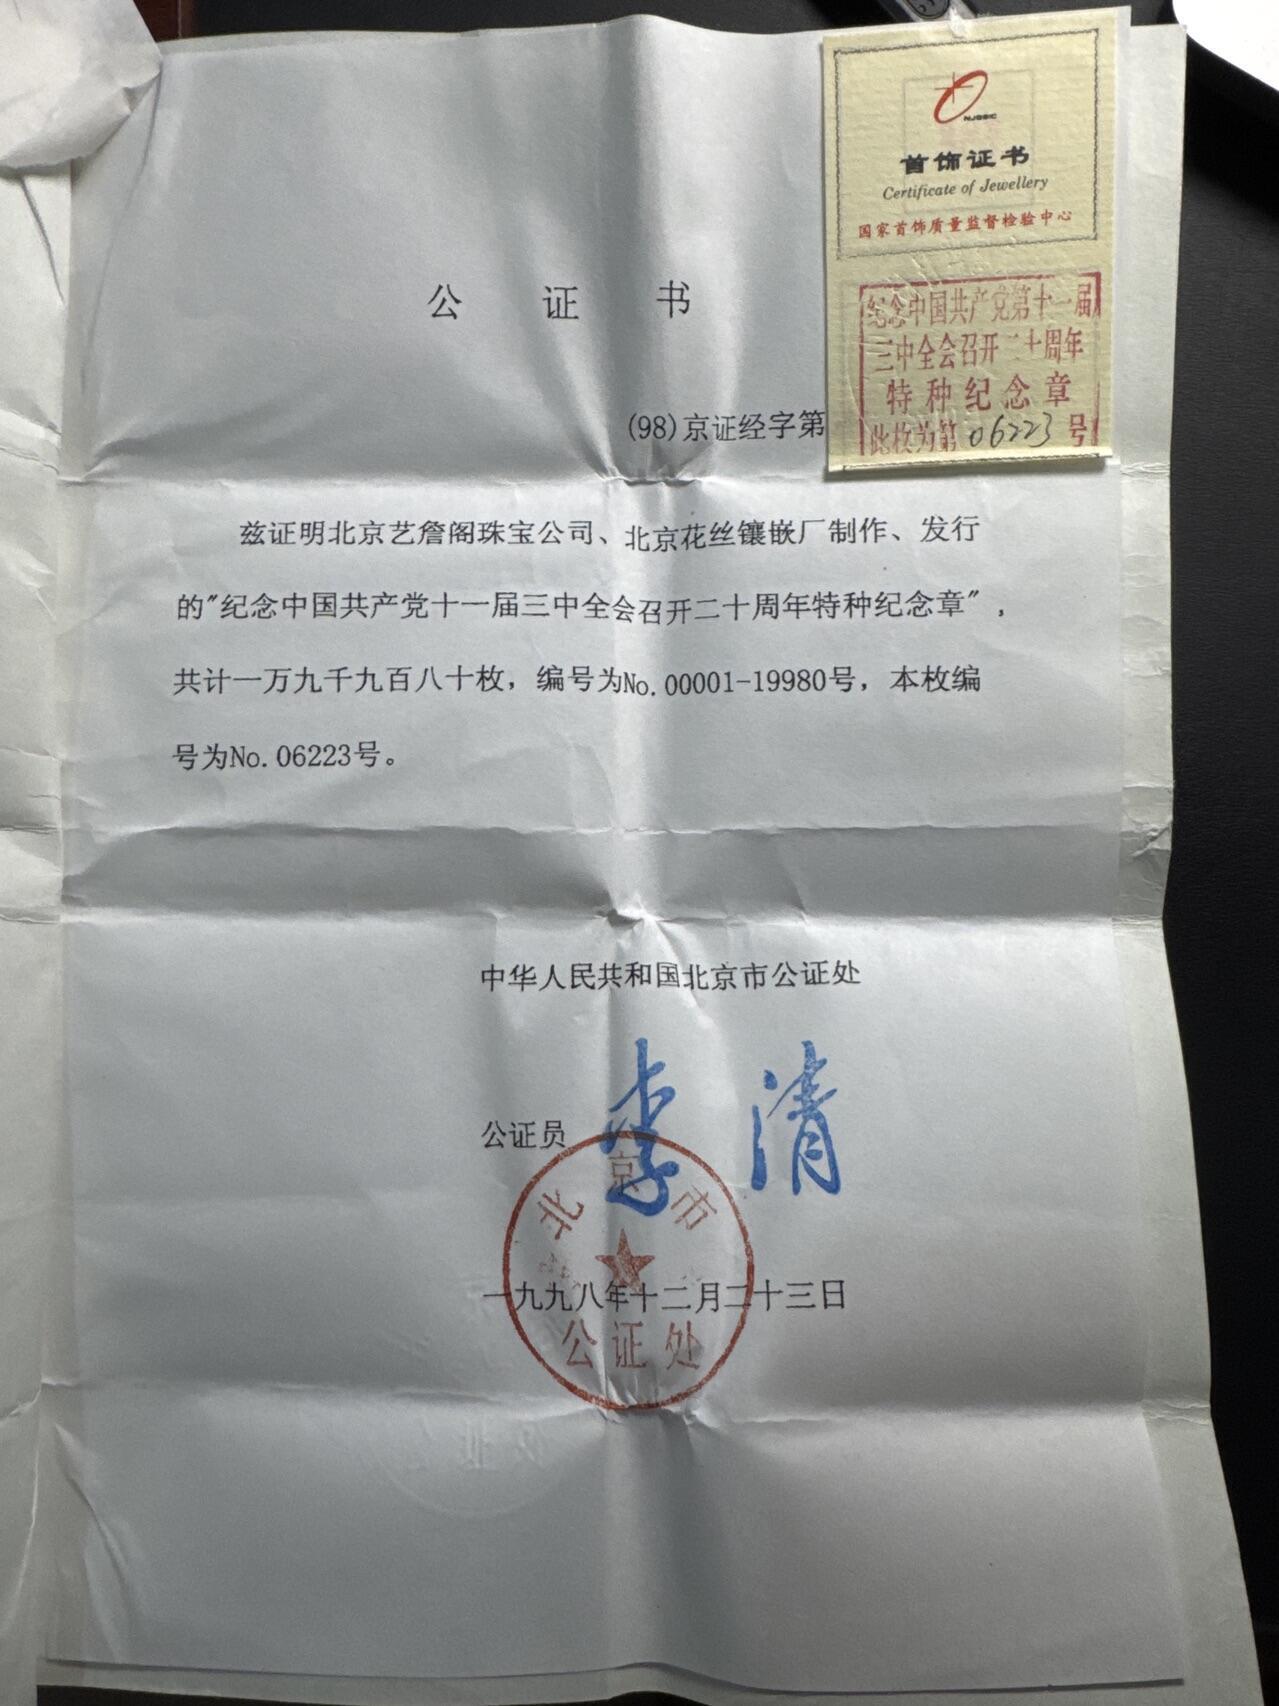 NJQSIC
首饰证书
Certificate of Jewellery
国家首饰质量监督检验中心
纪念中国共产党第十一届
三中全会召开二十周年
特种纪念章
此枚为第06223号
公证书
(98)京证经字第
兹证明北京艺詹阁珠宝公司、北京花丝镶嵌厂制作、发行
的"纪念中国共产党十一届三中全会召开二十周年特种纪念章",
共计一万九千九百八十枚,编号为No.00001-19980号,本枚编
号为No.06223号。
中华人民共和国北京市公证处
公证员 李清
北京市
一九九八年十二月二十三日
公证处